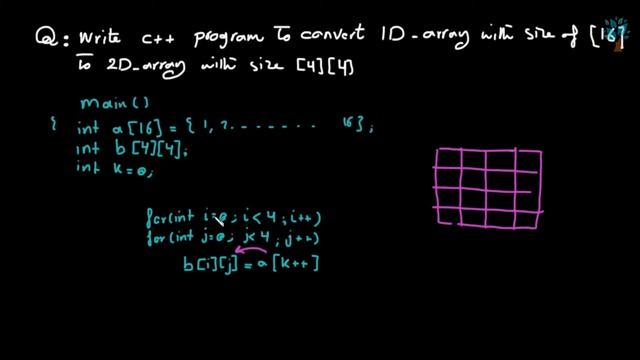 Q: Write c++ program to convert 1D_array with size of [16]
to 2D_array with size [4][4]
main()
{ int a[16] = { 1, 2....... 16};
int b[4][4];
int k=0;
for(int i=0; i<4; i++)
for(int j=0; j<4; j++)
b[i][j] = a[k++]